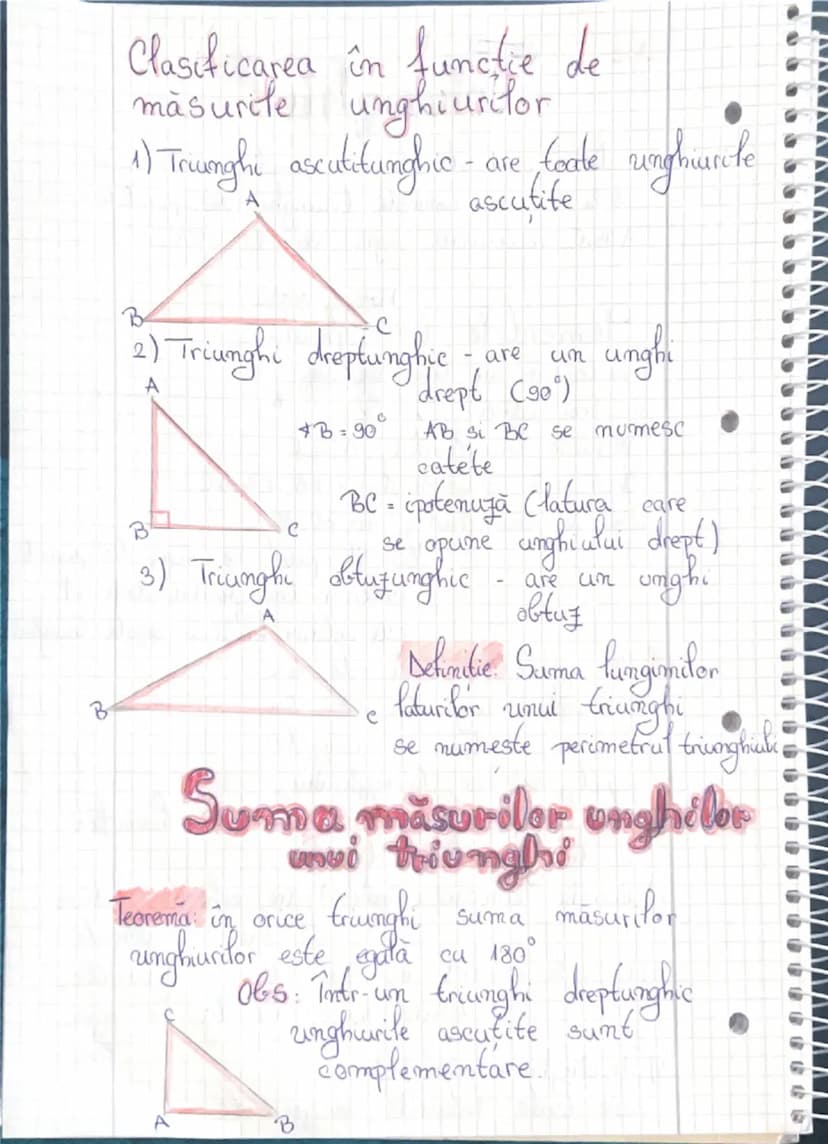 Clasificarea în funcție de
măsurile unghiurilor
1) Triunghi ascutitunghic - are toate unghiurile
ascuțite
A
B
C
2) Triunghi dreptunghic - are un unghi
drept (90°)
A
∢B = 90° AB și BC se numesc
catete
BC = ipotenuză (latura care
B
C
se opune unghiului drept)
3) Triunghi obtuzunghic - are un unghi
obtuz
A
Definitie: Suma lungimilor
B
C
laturilor unui triunghi
se numește perimetrul triunghiului
Suma măsurilor unghilor
unui triunghi
Teoremă: în orice triunghi suma măsurilor
unghiurilor este egală cu 180°
Obs: Într-un triunghi dreptunghic
C
unghiurile ascuțite sunt
complementare.
A
B